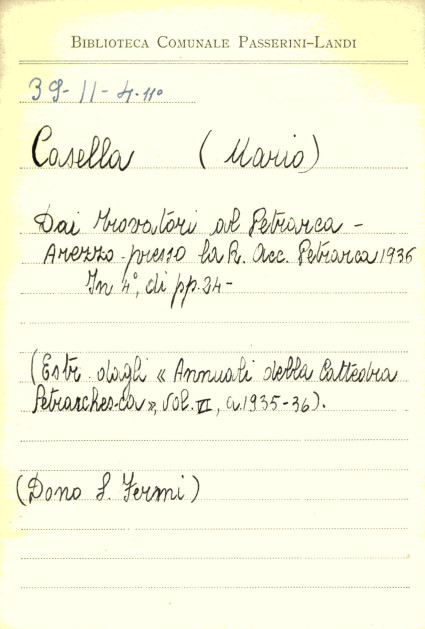 BIBLIOTECA COMUNALE PASSERINI-LANDI
39-11-4-11°
Casella (Mario)
Dai trovatori al Petrarca -
Arezzo - presso la R. Acc. Petrarca 1936
In 4°, di pp. 24 -
(Estr. dagli « Annali della Cattedra
Petrarchesca », vol. VI, a. 1935-36).
(Dono S. Fermi)